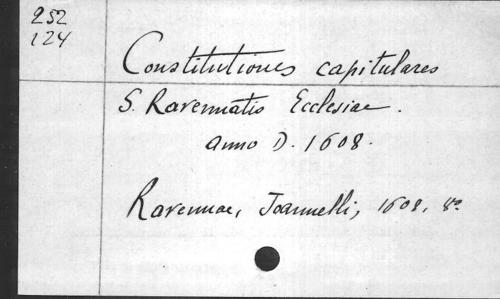 252
124
Constitutiones capitulares
S. Ravennatis Ecclesiae.
anno D. 1608.
Ravennae, Joannelli, 1608, 8º